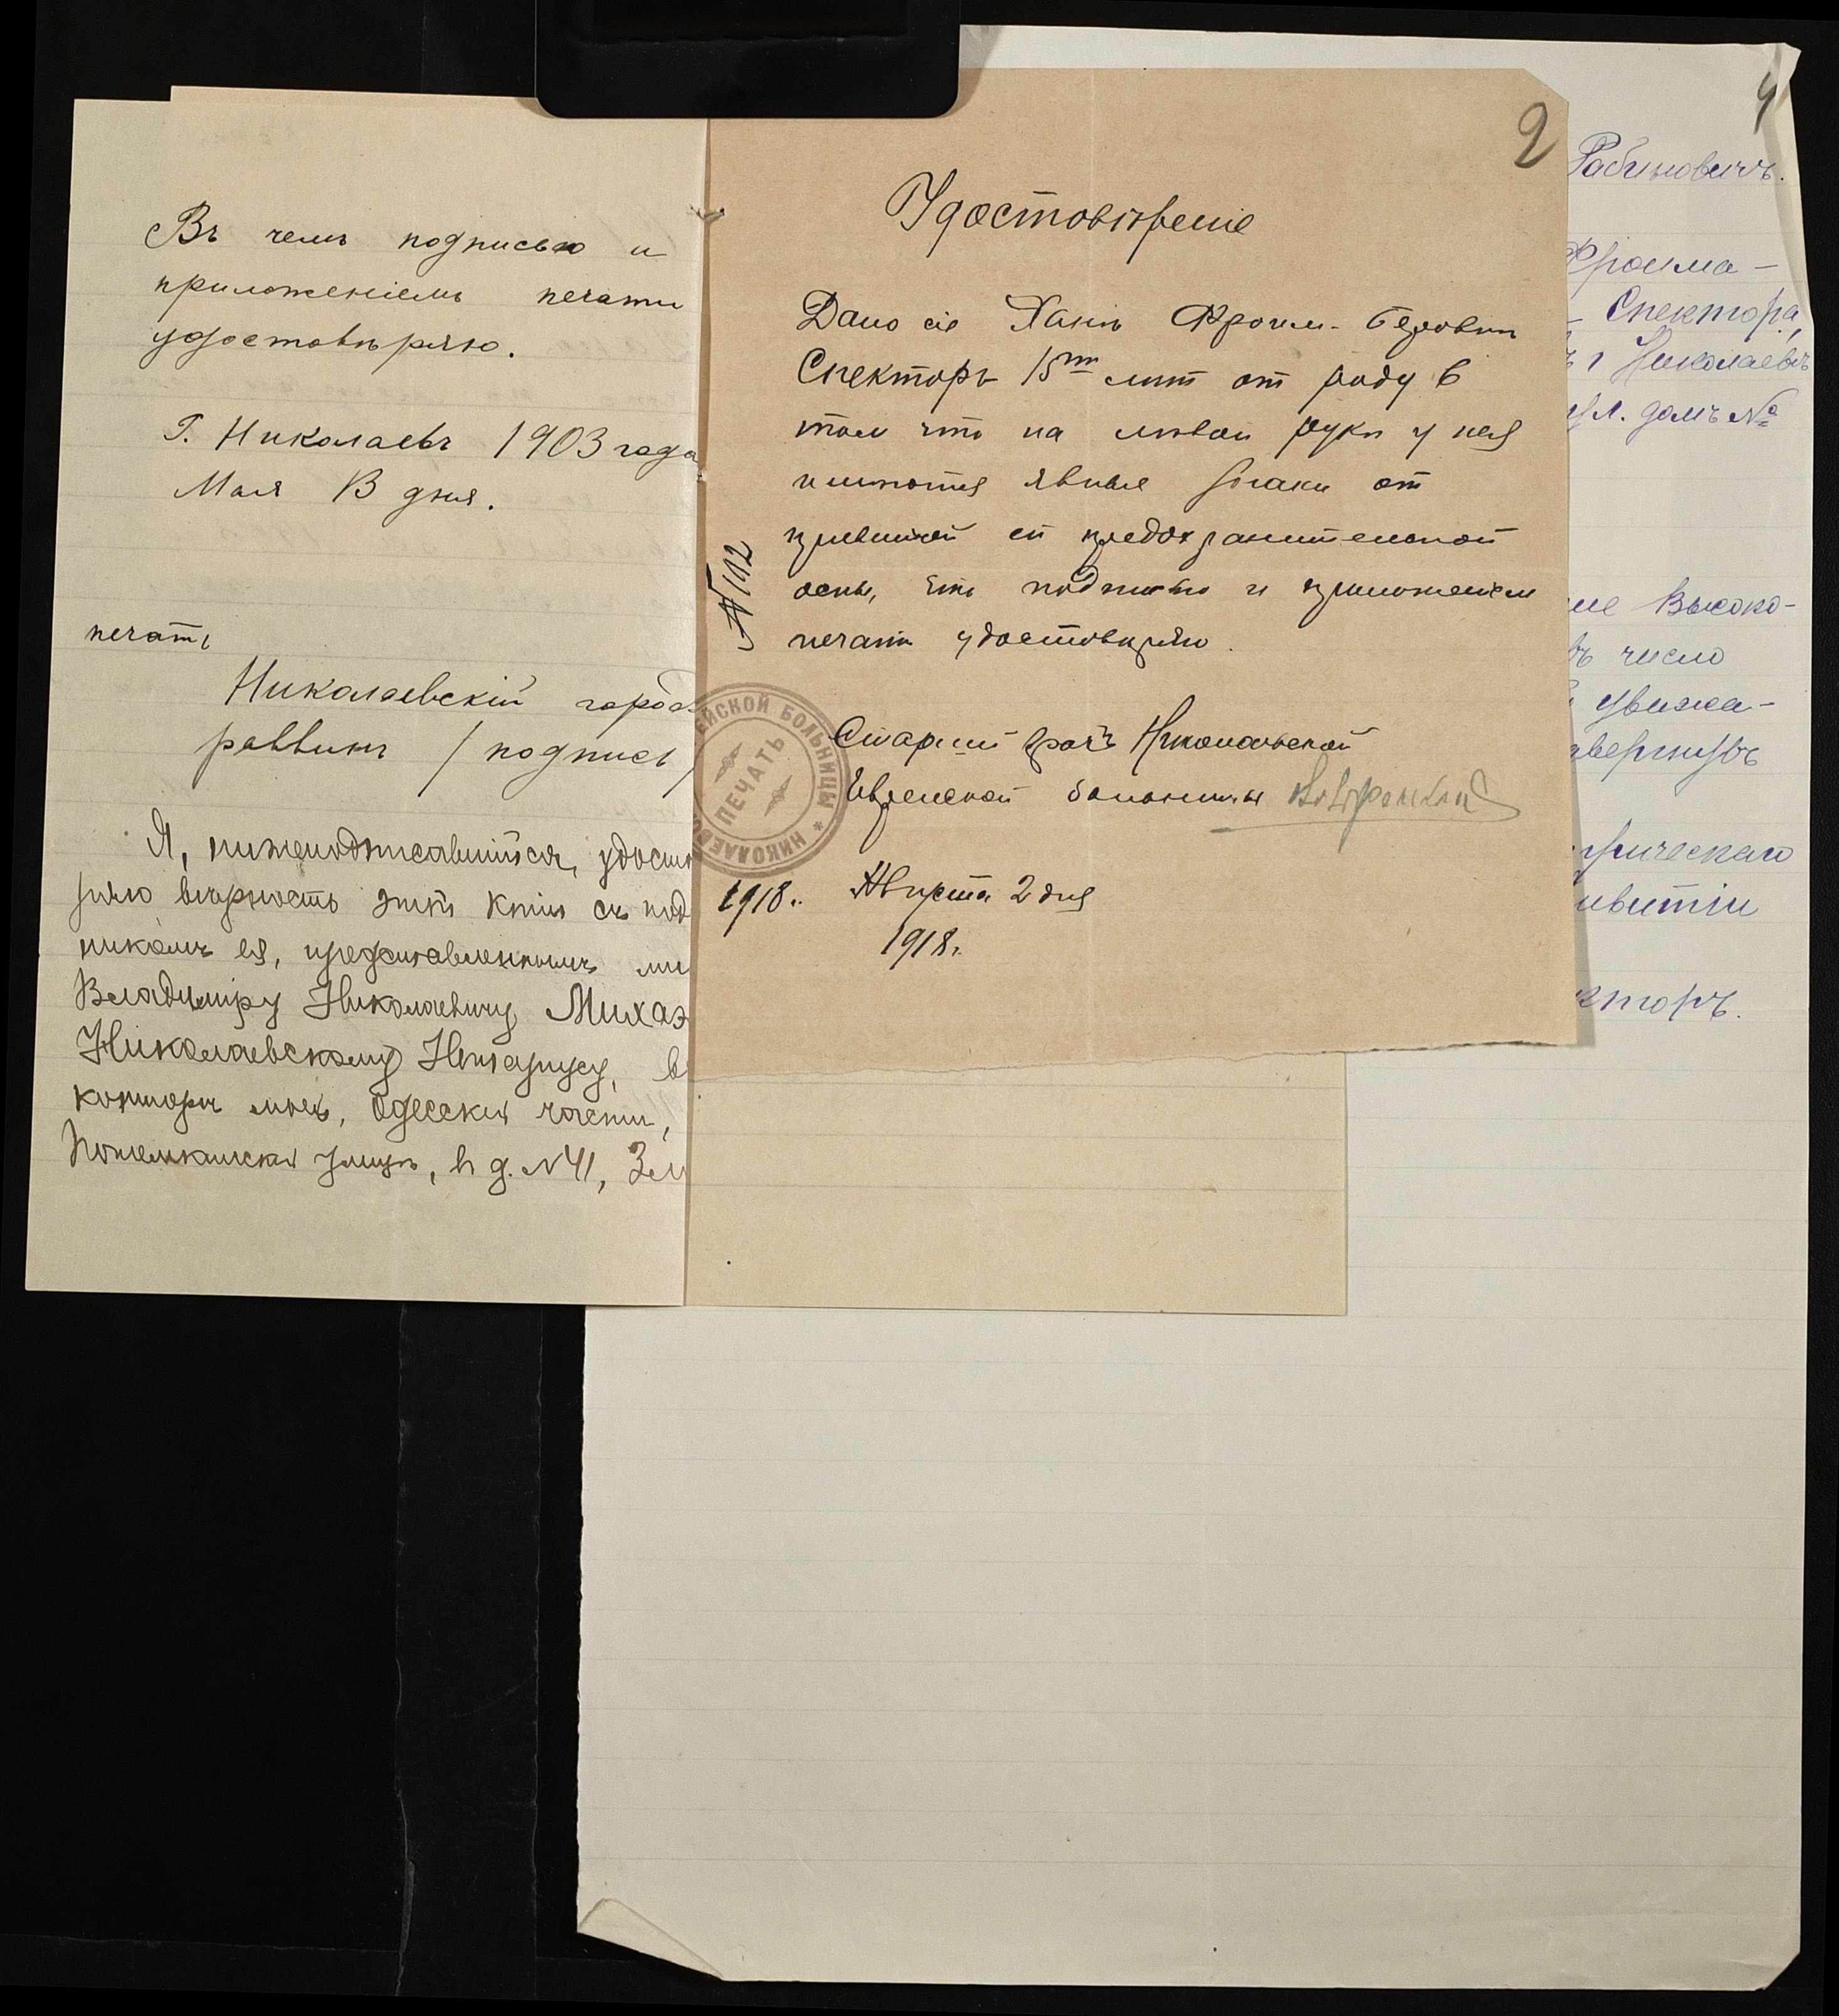 Въ чемъ подписью и
приложеніемъ печати
удостовѣряю.
Г. Николаевъ 1903 года
Мая 13 дня.
печать
Николаевскій город
раввинъ / подпись /
Я, нижеподписавшійся, удосто
ряю вѣрность этой копіи съ под
никомъ ея, представленнымъ мн
Владиміру Николаевичу Михаэ
Николаевскому Нотаріусу, в
конторѣ моей, Одесской части,
Потемкинской улицѣ, въ д. N 41,
2
Удостовѣреніе
Дано сіе Ханѣ Фроим-Беровнѣ
Спекторъ 15ти лѣт от роду в
том что на лѣвой руки у нея
имѣются явные знаки от
привитой ей предохранительной
оспы, что подписью и приложеніем
печати удостовѣряю.
N 112
ЕЙСКОЙ БОЛЬНИЦЫ * НИКОЛАЕВС
ПЕЧАТЬ
Старшій врачъ Николаевской
Еврейской больницы
1918г. Августа 2 дня
1918г.
4
Рабиновичъ.
Фроима-
Спектора,
г Николаевъ
ул. домъ №
ие Высоко-
въ число
уважа-
авергнувъ
рическаго
ивитіи
кторъ.